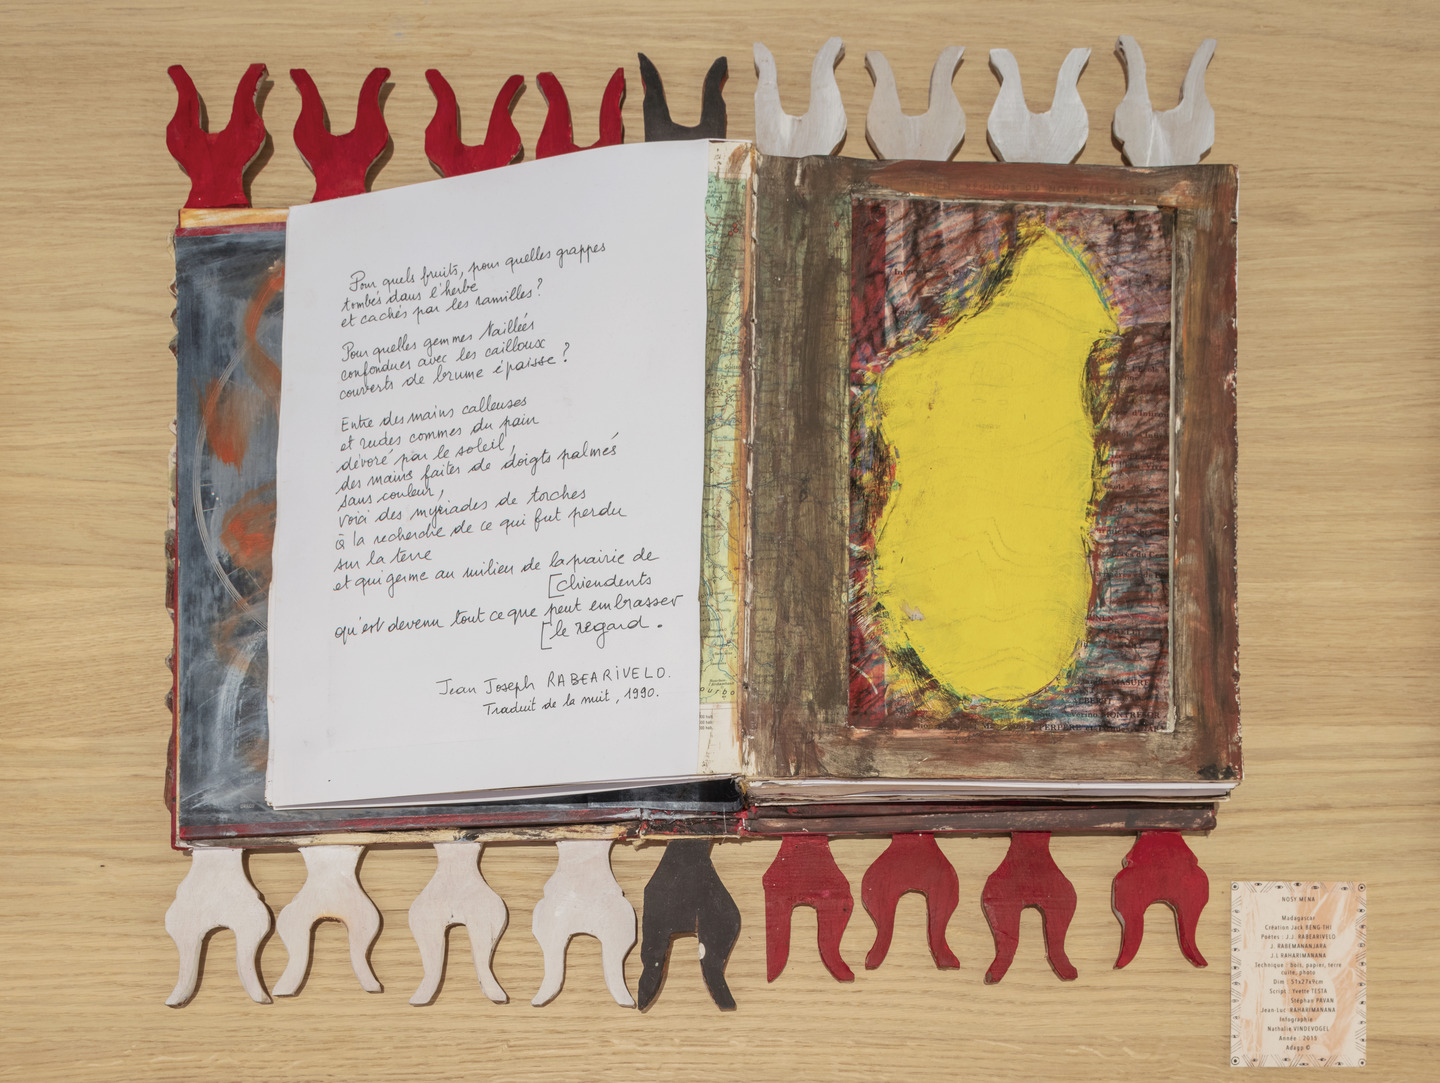 Pour quels fruits, pour quelles grappes
tombés dans l'herbe
et cachés par les ramilles ?
Pour quelles gemmes taillées
confondues avec les cailloux
couverts de brume épaisse ?
Entre des mains calleuses
et rudes commes du pain
dévoré par le soleil,
des mains faites de doigts palmés
sans couleur,
voici des myriades de torches
à la recherche de ce qui fut perdu
sur la terre
et qui germe au milieu de la prairie de
[chiendents
qu'est devenu tout ce que peut embrasser
[le regard.
Jean Joseph RABEARIVELO.
Traduit de la nuit, 1990.
MASURE
ALBERT
MONTRE
NOSY MENA
Madagascar
Création Jack BENG-THI
Poètes : J.J. RABEARIVELO
J. RABEMANANJARA
J.L RAHARIMANANA
Technique : bois, papier, terre
cuite, photo
Dim : 51x27x9cm
Script : Yvette TESTA
Stéphan PAVAN
Jean-Luc RAHARIMANANA
Infographie
Nathalie VINDEVOGEL
Année : 2010
Adagp ©